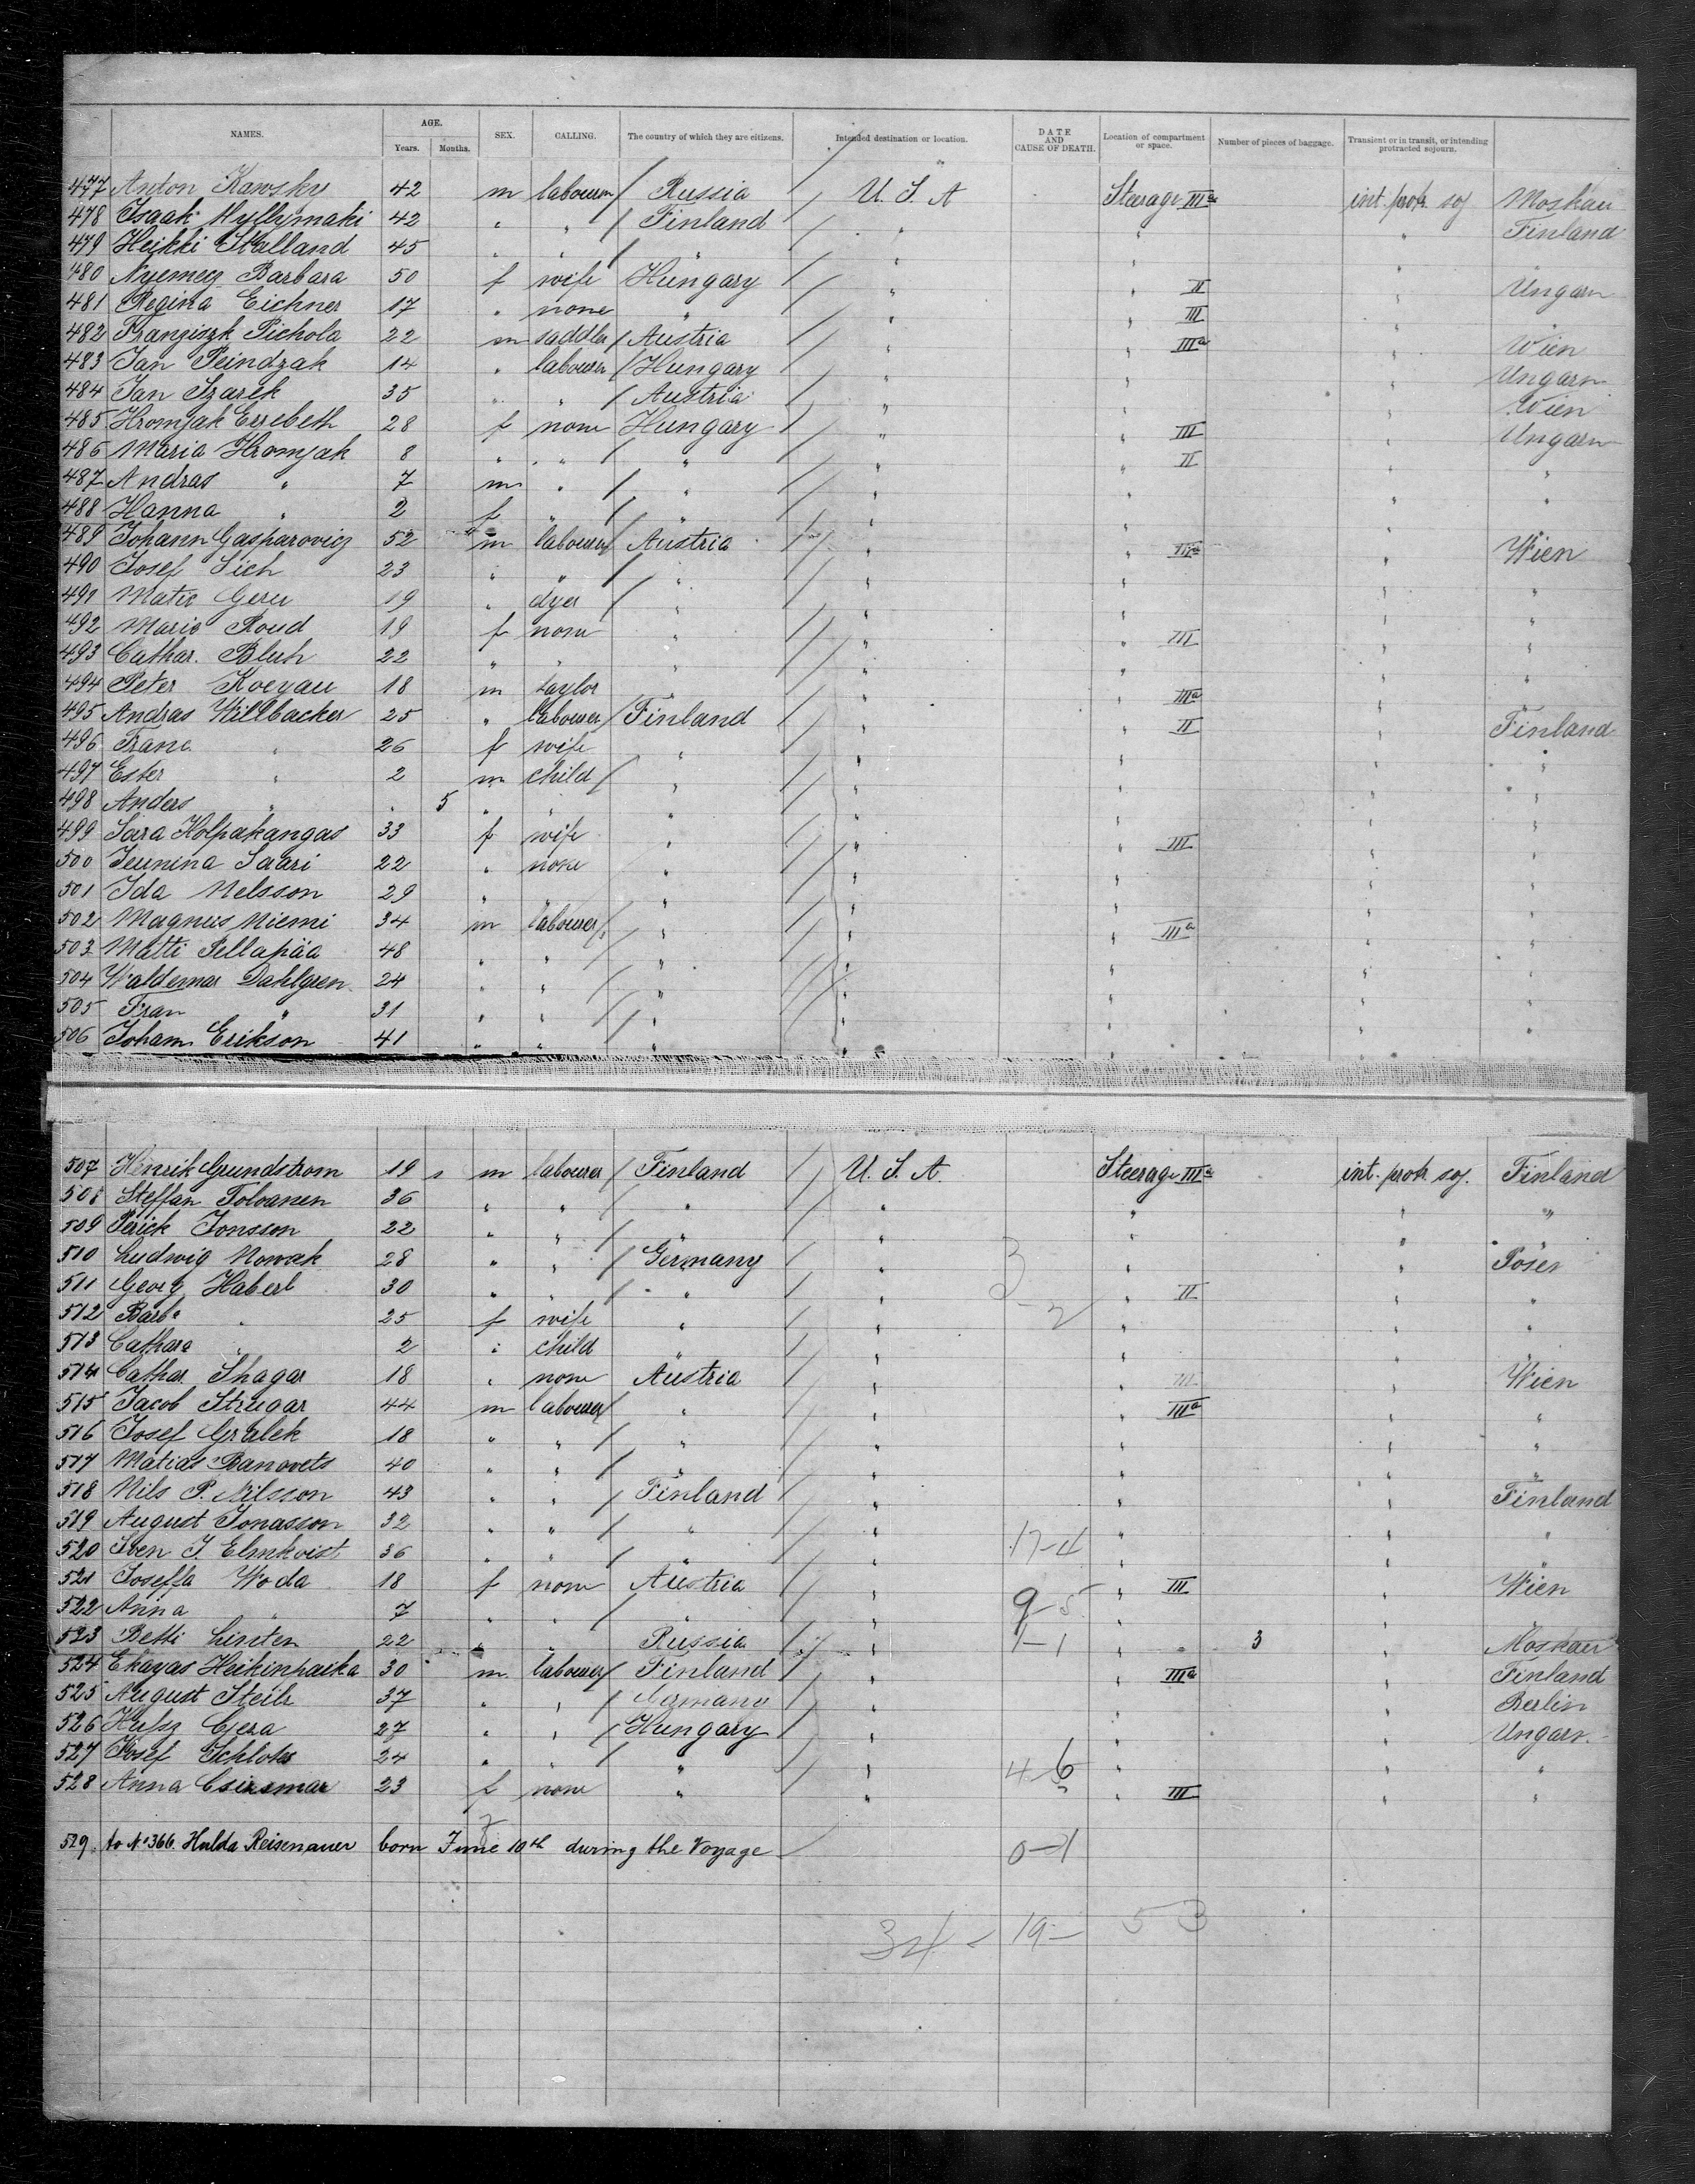 NAMES. AGE. Years. Months. SEX. CALLING. The country of which they are citizens. Intended destination or location. DATE AND CAUSE OF DEATH. Location of compartment or space. Number of pieces of baggage. Transient or in transit, or intending protracted sojourn.
477 Anton Kawsky 42 m labourer Russia U. S. A Steerage IIIa int. protr. soj Moskau
478 Isaak Myllymaki 42 " " Finland " " " Finland
479 Heikki Stalland 45 " " " " " "
480 Nyemecz Barbara 50 f wife Hungary " " II " Ungarn
481 Regina Eichner 17 " none " " " III " "
482 Franziszk Pichola 22 m saddler Austria " " IIIa " Wien
483 Jan Peindzak 14 " labourer Hungary " " " Ungarn
484 Jan Szarek 35 " " Austria " " " Wien
485 Hromjak Erzebeth 28 f none Hungary " " III " Ungarn
486 Maria Hromjak 8 " " " " " II " "
487 Andras " 7 m " " " " " "
488 Hanna " 2 f " " " " " "
489 Johann Gasparovicz 52 m labourer Austria " " IIIa " Wien
490 Josef Sich 23 " " " " " " "
491 Matic Geru 19 " dyer " " " " "
492 Marie Roud 19 f none " " " III " "
493 Cathar. Bluh 22 " " " " " " "
494 Peter Koeyau 18 m taylor " " " IIIa " "
495 Andras Willbacker 25 " labourer Finland " " II " Finland
496 Franc " 26 f wife " " " " "
497 Ester " 2 m child " " " " "
498 Anders " 5 " " " " " " "
499 Sara Holpakangas 33 f wife " " " III " "
500 Jeunina Saari 22 " none " " " " "
501 Ida Nelsson 29 " " " " " " "
502 Magnus Niemi 34 m labourer " " " IIIa " "
503 Matti Pellapäa 48 " " " " " " "
504 Waldemar Dahlgren 24 " " " " " " "
505 Fran " 31 " " " " " " "
506 Joham Erikson 41 " " " " " " "
507 Henrik Grundstrom 19 m labourer Finland U. S. A. Steerage IIIa int. protr. soj. Finland
508 Steffan Tolvanen 36 " " " " " " "
509 Perick Jonsson 22 " " " " " " "
510 Ludwig Nowak 28 " " Germany " 3 " " Posen
511 Georg Haberl 30 " " " " " II " "
512 Barba " 25 f wife " " -2 " " "
513 Cathara " 2 " child " " " " "
514 Cathar. Shagar 18 " none Austria " " III " Wien
515 Jacob Strugar 44 m labourer " " " IIIa " "
516 Josef Gralek 18 " " " " " " "
517 Matias Banovets 40 " " " " " " "
518 Nils P. Nilsson 43 " " Finland " " " Finland
519 August Jonasson 32 " " " " " " "
520 Sven J. Elmkvist 36 " " " " 17-4 " " "
521 Joseffa Woda 18 f none Austria " " III " Wien
522 Anna " 7 " " " " 9-5 " "
523 Betti Linten 22 " " Russia " 1-1 " " 3 " Moskau
524 Ekayas Heikinhaika 30 m labourer Finland " " IIIa " Finland
525 August Steilr 37 " " Germany " " " Berlin
526 Hufsz Geza 27 " " Hungary " " " Ungarn.
527 Josef Schloks 24 " " " " 4-6 " " "
528 Anna Csirsmar 23 f none " " " III " "
529. to No 366. Hulda Reisenauer born June 10th during the Voyage 0-1
34 - 19- 53